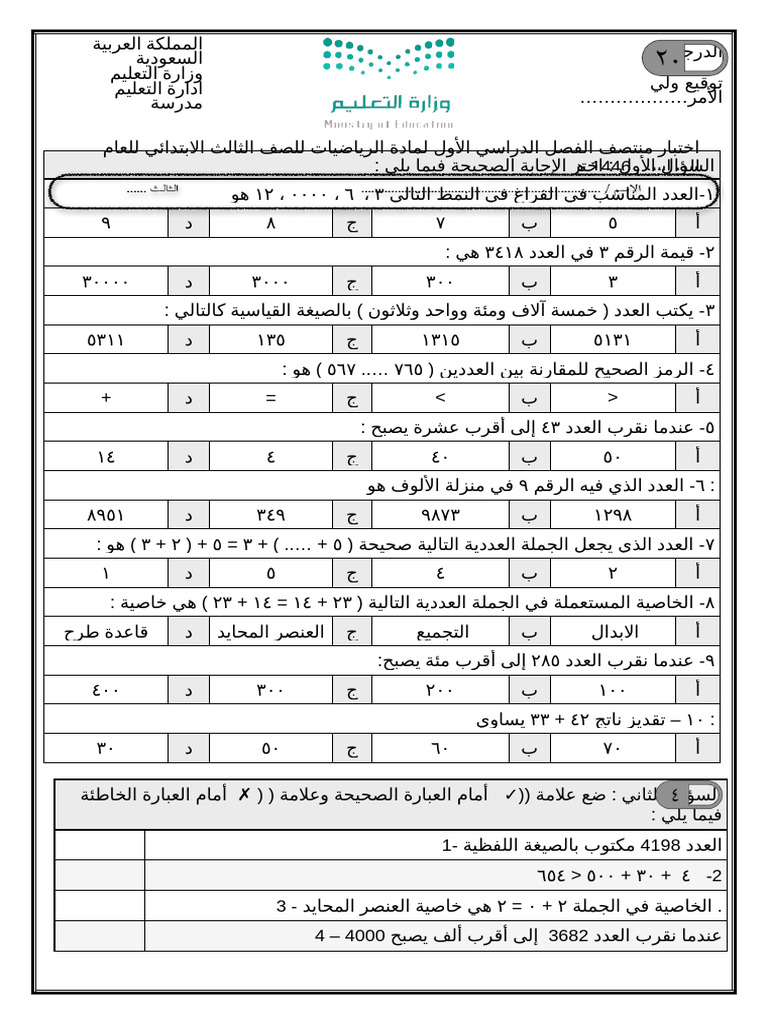 المملكة العربية
السعودية
وزارة التعليم
ادارة التعليم
مدرسة
وزارة التعليم
Ministry of Education
الدرج
٢٠
توقيع ولي
الأمر..................
اختبار منتصف الفصل الدراسي الأول لمادة الرياضيات للصف الثالث الابتدائي للعام
السؤال الأول : اختر الإجابة الصحيحة فيما يلي :
١-العدد المناسب في الفراغ في النمط التالي ٣ ، ٦ ، ٠٠٠٠ ، ١٢ هو
أ ٥ ب ٧ ج ٨ د ٩
٢- قيمة الرقم ٣ في العدد ٣٤١٨ هي :
أ ٣ ب ٣٠٠ ج ٣٠٠٠ د ٣٠٠٠٠
٣- يكتب العدد ( خمسة آلاف ومئة وواحد وثلاثون ) بالصيغة القياسية كالتالي :
أ ٥١٣١ ب ١٣١٥ ج ١٣٥ د ٥٣١١
٤- الرمز الصحيح للمقارنة بين العددين ( ٧٦٥ ..... ٥٦٧ ) هو :
أ < ب > ج = د +
٥- عندما نقرب العدد ٤٣ إلى أقرب عشرة يصبح :
أ ٥٠ ب ٤٠ ج ٤ د ١٤
: ٦- العدد الذي فيه الرقم ٩ في منزلة الألوف هو
أ ١٢٩٨ ب ٩٨٧٣ ج ٣٤٩ د ٨٩٥١
٧- العدد الذي يجعل الجملة العددية التالية صحيحة ( ٥ + ..... ) + ٣ = ٥ + ( ٢ + ٣ ) هو :
أ ٢ ب ٤ ج ٥ د ١
٨- الخاصية المستعملة في الجملة العددية التالية ( ٢٣ + ١٤ = ١٤ + ٢٣ ) هي خاصية :
أ الابدال ب التجميع ج العنصر المحايد د قاعدة طرح
٩- عندما نقرب العدد ٢٨٥ إلى أقرب مئة يصبح:
أ ١٠٠ ب ٢٠٠ ج ٣٠٠ د ٤٠٠
: ١٠ – تقدير ناتج ٤٢ + ٣٣ يساوي
أ ٧٠ ب ٦٠ ج ٥٠ د ٣٠
٤
لثاني : ضع علامة ((✓ أمام العبارة الصحيحة وعلامة ( ( ✗ أمام العبارة الخاطئة
فيما يلي :
العدد 4198 مكتوب بالصيغة اللفظية -1
2- ٤ + ٣٠ + ٥٠٠ < ٦٥٤
. الخاصية في الجملة ٢ + ٠ = ٢ هي خاصية العنصر المحايد - 3
عندما نقرب العدد 3682 إلى أقرب ألف يصبح 4000 – 4